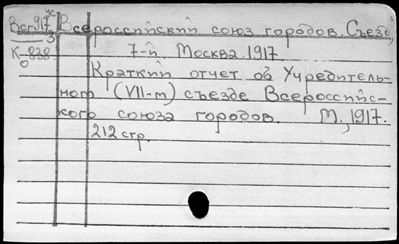 Вст.917 Всероссийский союз городов. Съезд,
К-838 7-й Москва 1917.
Краткий отчет об Учредитель-
ном (VII-м) съезде Всероссийс-
кого союза городов. М., 1917.
212 стр.